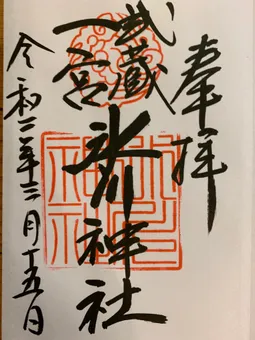 奉拝
武蔵
一宮
氷川神社
令和二年十二月十五日